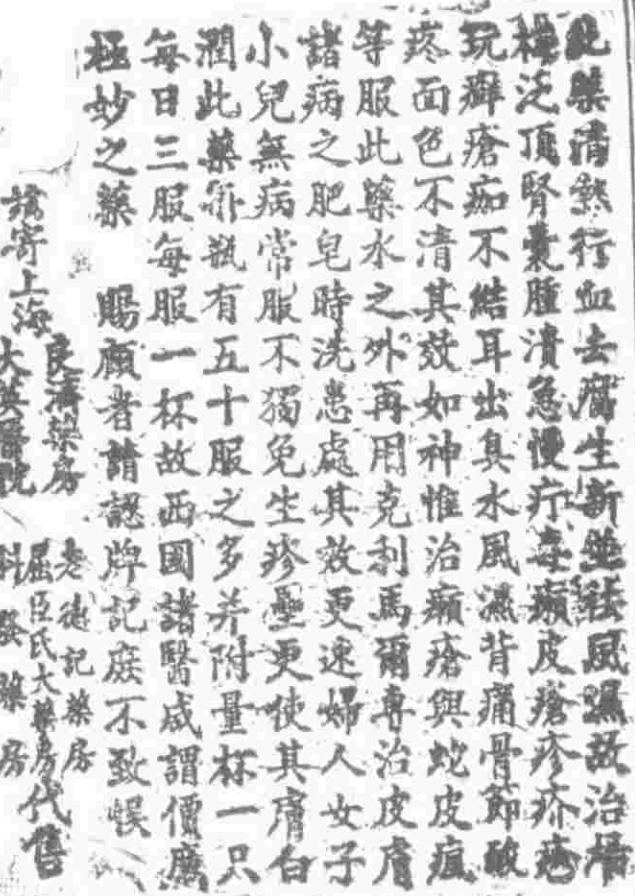 此藥清熱行血去腐生新並祛風濕故治楊
梅泛頂腎囊腫潰急慢疔毒癩皮瘡疹疥瘡
玩癬瘡痂不結耳出臭水風濕背痛骨節酸
疼面色不清其效如神惟治癩瘡與蛇皮瘋
等服此藥水之外再用克利馬爾專治皮膚
諸病之肥皂時洗患處其效更速婦人女子
小兒無病常服不獨免生疹壘更使其膚白
潤此藥瓶有五十服之多并附量杯一只
每日三服每服一杯故西國諸醫咸謂價廉
極妙之藥 賜顧者請認牌記庶不致悞
寄上海
良濟藥房
大英醫院
老德記藥房
屈臣氏大藥房
科發藥房
代售